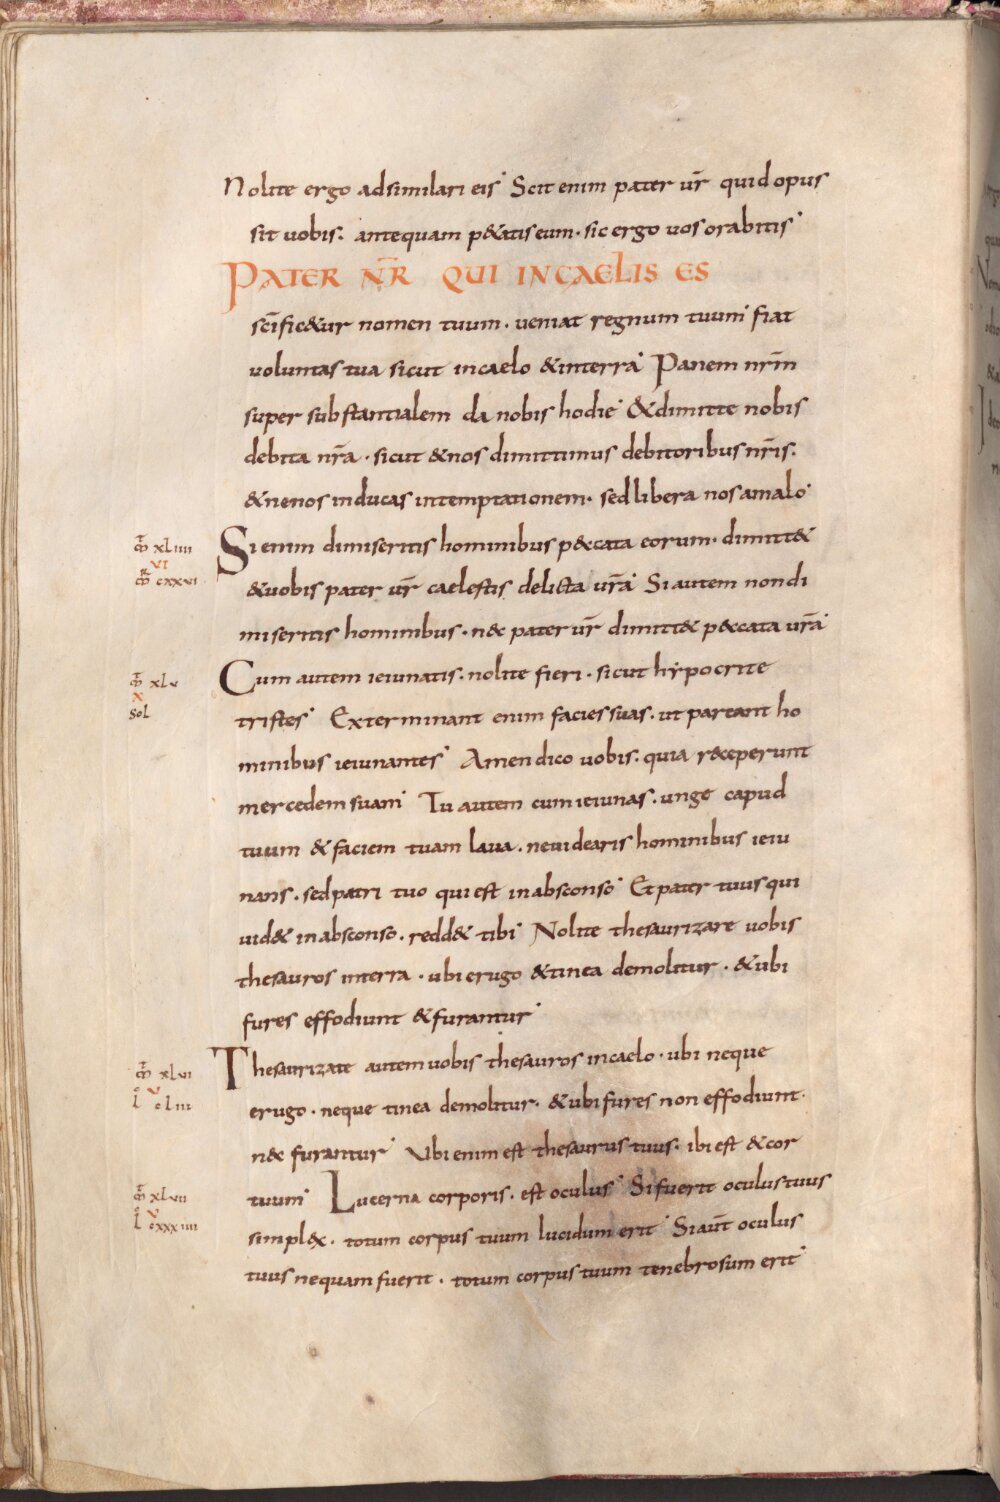 Nolite ergo adsimilari eis Scit enim pater ur̅ quid opus
sit uobis. antequam p&atis eum. sic ergo uos orabitis
PATER N̅R QUI IN CAELIS ES
sc̅ific&ur nomen tuum. ueniat regnum tuum fiat
uoluntas tua sicut in caelo & in terra Panem nr̅m
super substantialem da nobis hodie & dimitte nobis
debita nr̅a. sicut & nos dimittimus debitoribus nr̅is.
& ne nos inducas in temptationem. sed libera nos a malo
m̅ xliiii
VI
m̅ cxxvi
Si enim dimiseritis hominibus p&cata eorum. dimitt&
& uobis pater ur̅ caelestis delicta ur̅a Si autem non di
miseritis hominibus. n&c pater ur̅ dimitt& p&cata ur̅a
m̅ xlv
X
sol
Cum autem ieiunatis. nolite fieri. sicut hypocrite
tristes Exterminant enim facies suas. ut pareant ho
minibus ieiunantes Amen dico uobis. quia receperunt
mercedem suam Tu autem cum ieiunas. unge capud
tuum & faciem tuam laua. ne uidearis hominibus ieiu
nans. sed patri tuo qui est in absconso Et pater tuus qui
uid& in absconso. redd& tibi Nolite thesaurizare uobis
thesauros in terra. ubi erugo & tinea demolitur. & ubi
fures effodiunt & furantur
m̅ xlvi
l V clııı
Thesaurizate autem uobis thesauros in caelo. ubi neque
erugo. neque tinea demolitur. & ubi fures non effodiunt.
n&c furantur Ubi enim est thesaurus tuus. ibi est & cor
m̅ xlvii
l V cxxxiiii
tuum Lucerna corporis. est oculus Si fuerit oculus tuus
simpl&x. totum corpus tuum lucidum erit Si aut̅ oculus
tuus nequam fuerit. totum corpus tuum tenebrosum erit